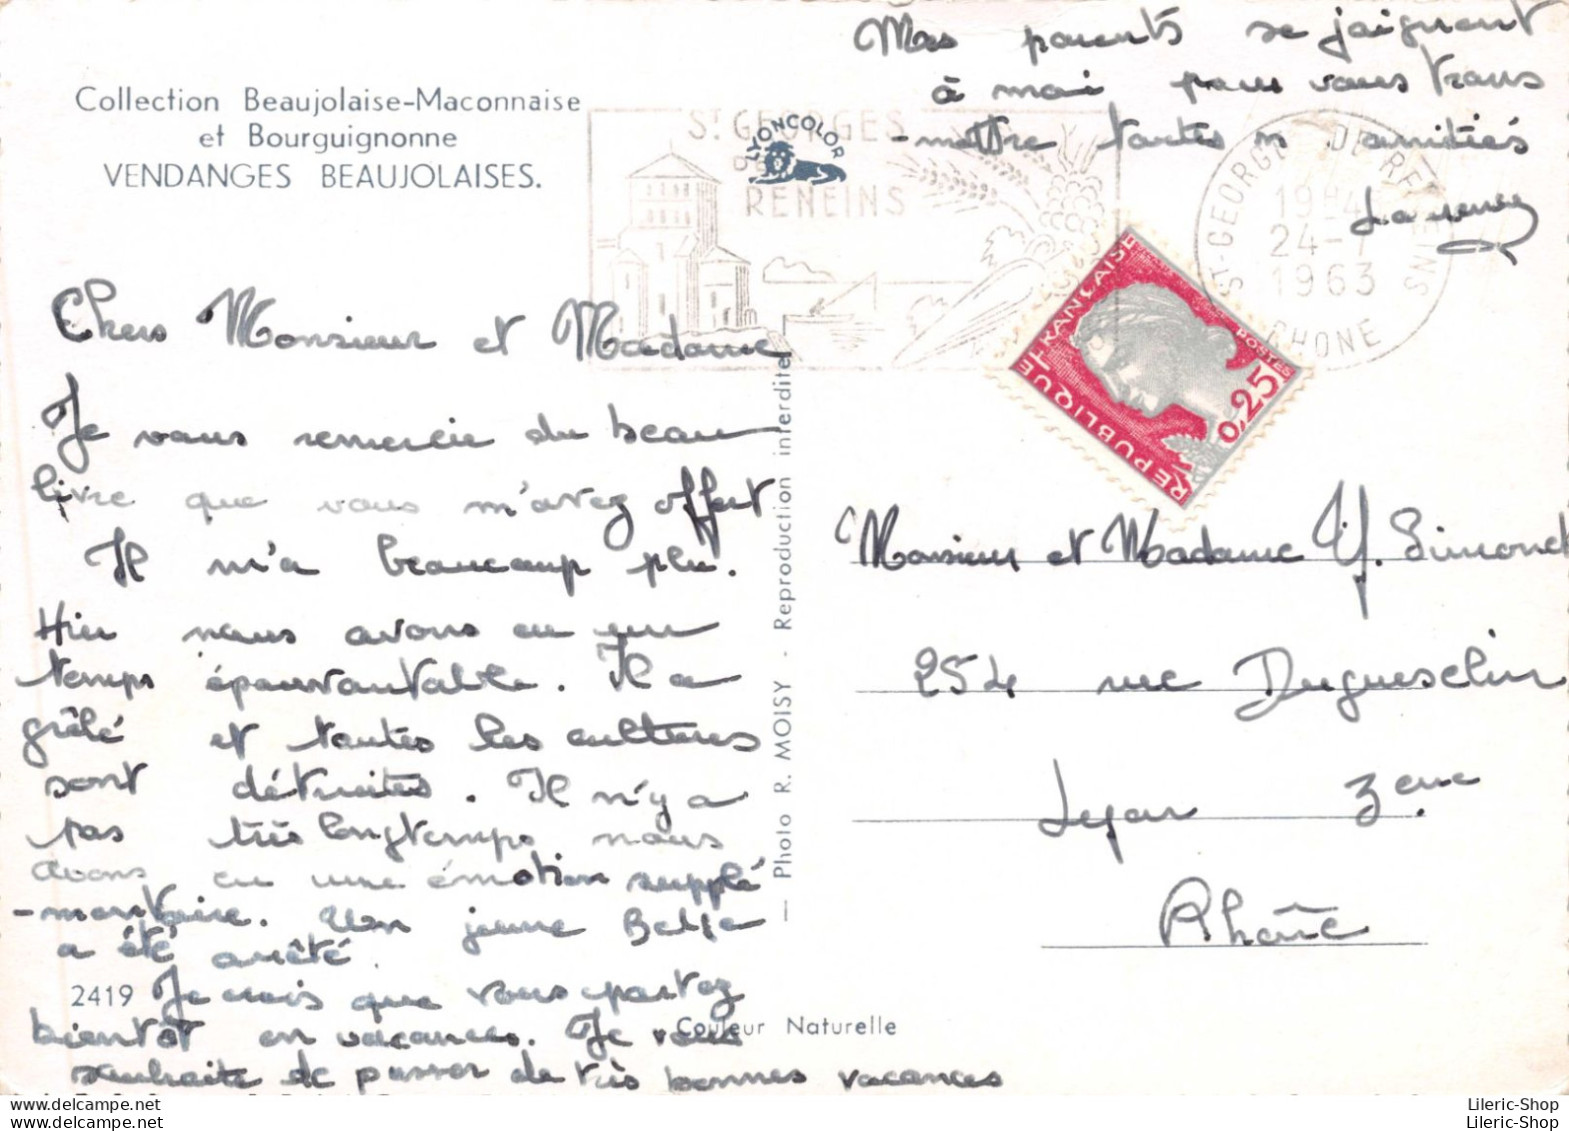 Collection Beaujolaise-Maconnaise
et Bourguignonne
VENDANGES BEAUJOLAISES.
ST GEORGES
RENEINS
LYONCOLOR
Mes parents se joignent
à moi pour vous trans
-mettre toutes n amitiés
Laurence
ST-GEORGES DE RENEINS
24-7
1963
RHONE
REPUBLIQUE FRANÇAISE
POSTES
0,25
Chers Monsieur et Madame
Je vous remercie du beau
livre que vous m'avez offert
Il m'a beaucoup plu.
Hier nous avons eu un
temps épouvantable. Il a
grêlé et toutes les cultures
sont détruites. Il n'y a
pas très longtemps nous
avons eu une émotion supplé
-mentaire. Un jeune
a été arrêté.
Je crois que vous partez
bientôt en vacances. Je vous
souhaite de passer de très bonnes vacances
2419
Couleur Naturelle
— Photo R. MOISY - Reproduction interdite
Monsieur et Madame Y. Simonet
254 rue Duguesclin
Lyon 3eme
Rhône
Lileric-Shop
Lileric-Shop
Lileric-Shop
Lileric-Shop